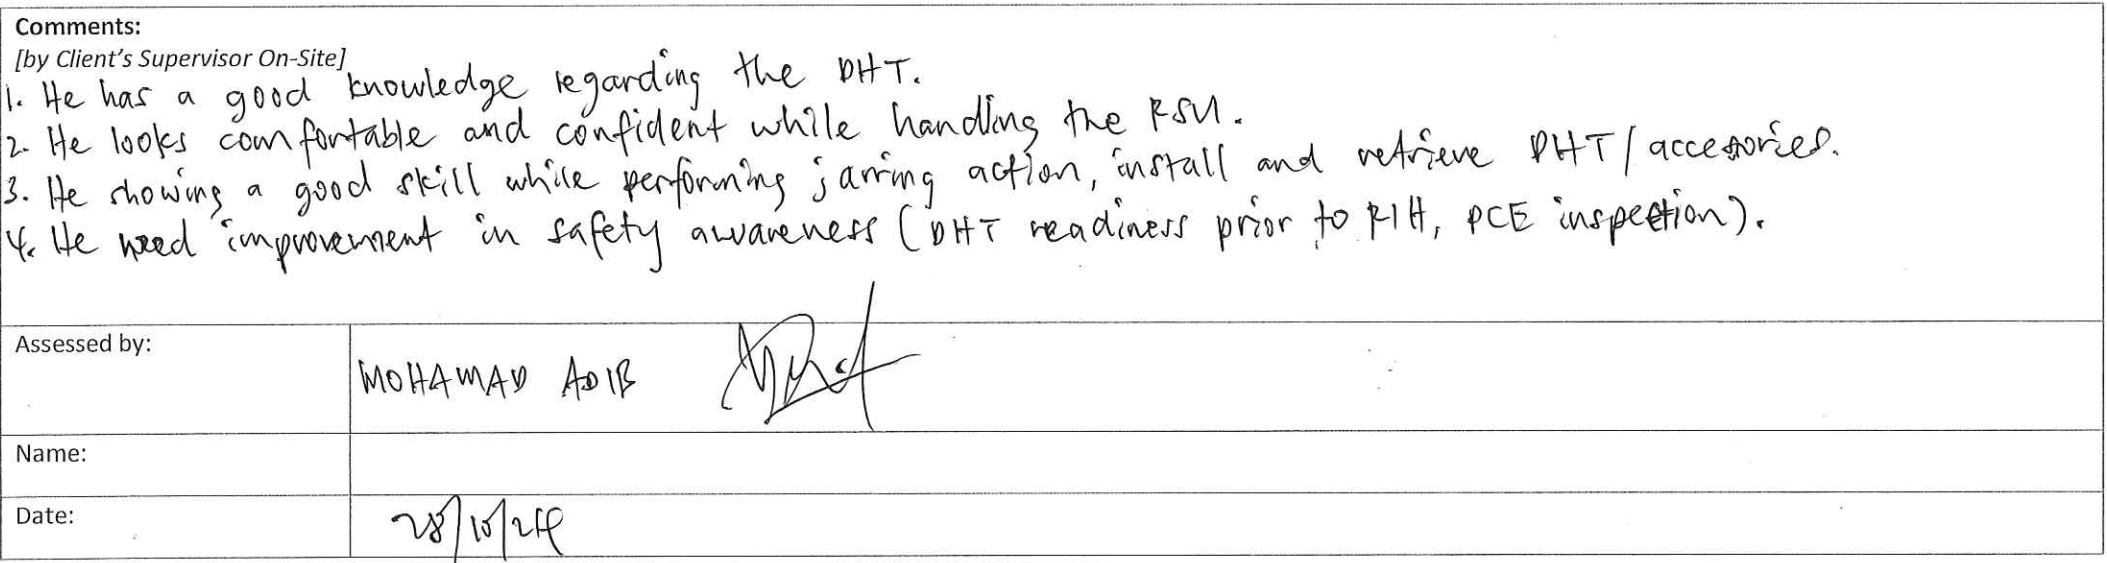 Comments:
[by Client's Supervisor On-Site]
1. He has a good knowledge regarding the DHT.
2. He looks comfortable and confident while handling the RSU.
3. He showing a good skill while performing jarring action, install and retrieve DHT/accessories.
4. He need improvement in safety awareness (DHT readiness prior to RIH, PCE inspection).
Assessed by: MOHAMAD ADIB
Name:
Date: 28/10/24